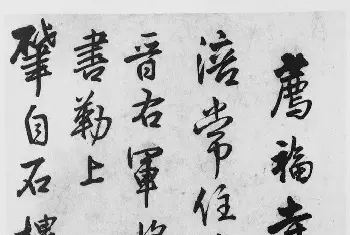 薦福寺
涪常住
晋右軍
書勒上
肇自石